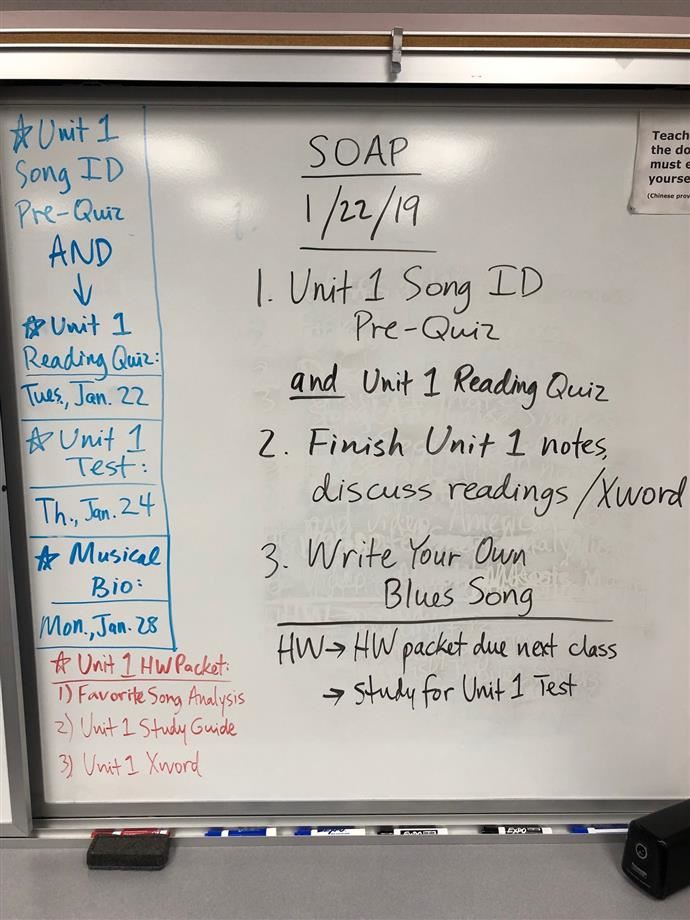 ☆ Unit 1
Song ID
Pre-Quiz
AND
↓
☆ Unit 1
Reading Quiz:
Tues., Jan. 22
☆ Unit 1
Test:
Th., Jan. 24
☆ Musical
Bio:
Mon., Jan. 28
☆ Unit 1 HW Packet:
1) Favorite Song Analysis
2) Unit 1 Study Guide
3) Unit 1 Xword
SOAP
1/22/19
1. Unit 1 Song ID
Pre-Quiz
and Unit 1 Reading Quiz
2. Finish Unit 1 notes,
discuss readings/Xword
3. Write Your Own
Blues Song
HW → HW packet due next class
→ Study for Unit 1 Test
Teach
the do
must e
yourse
(Chinese prov
EXPO
EXPO